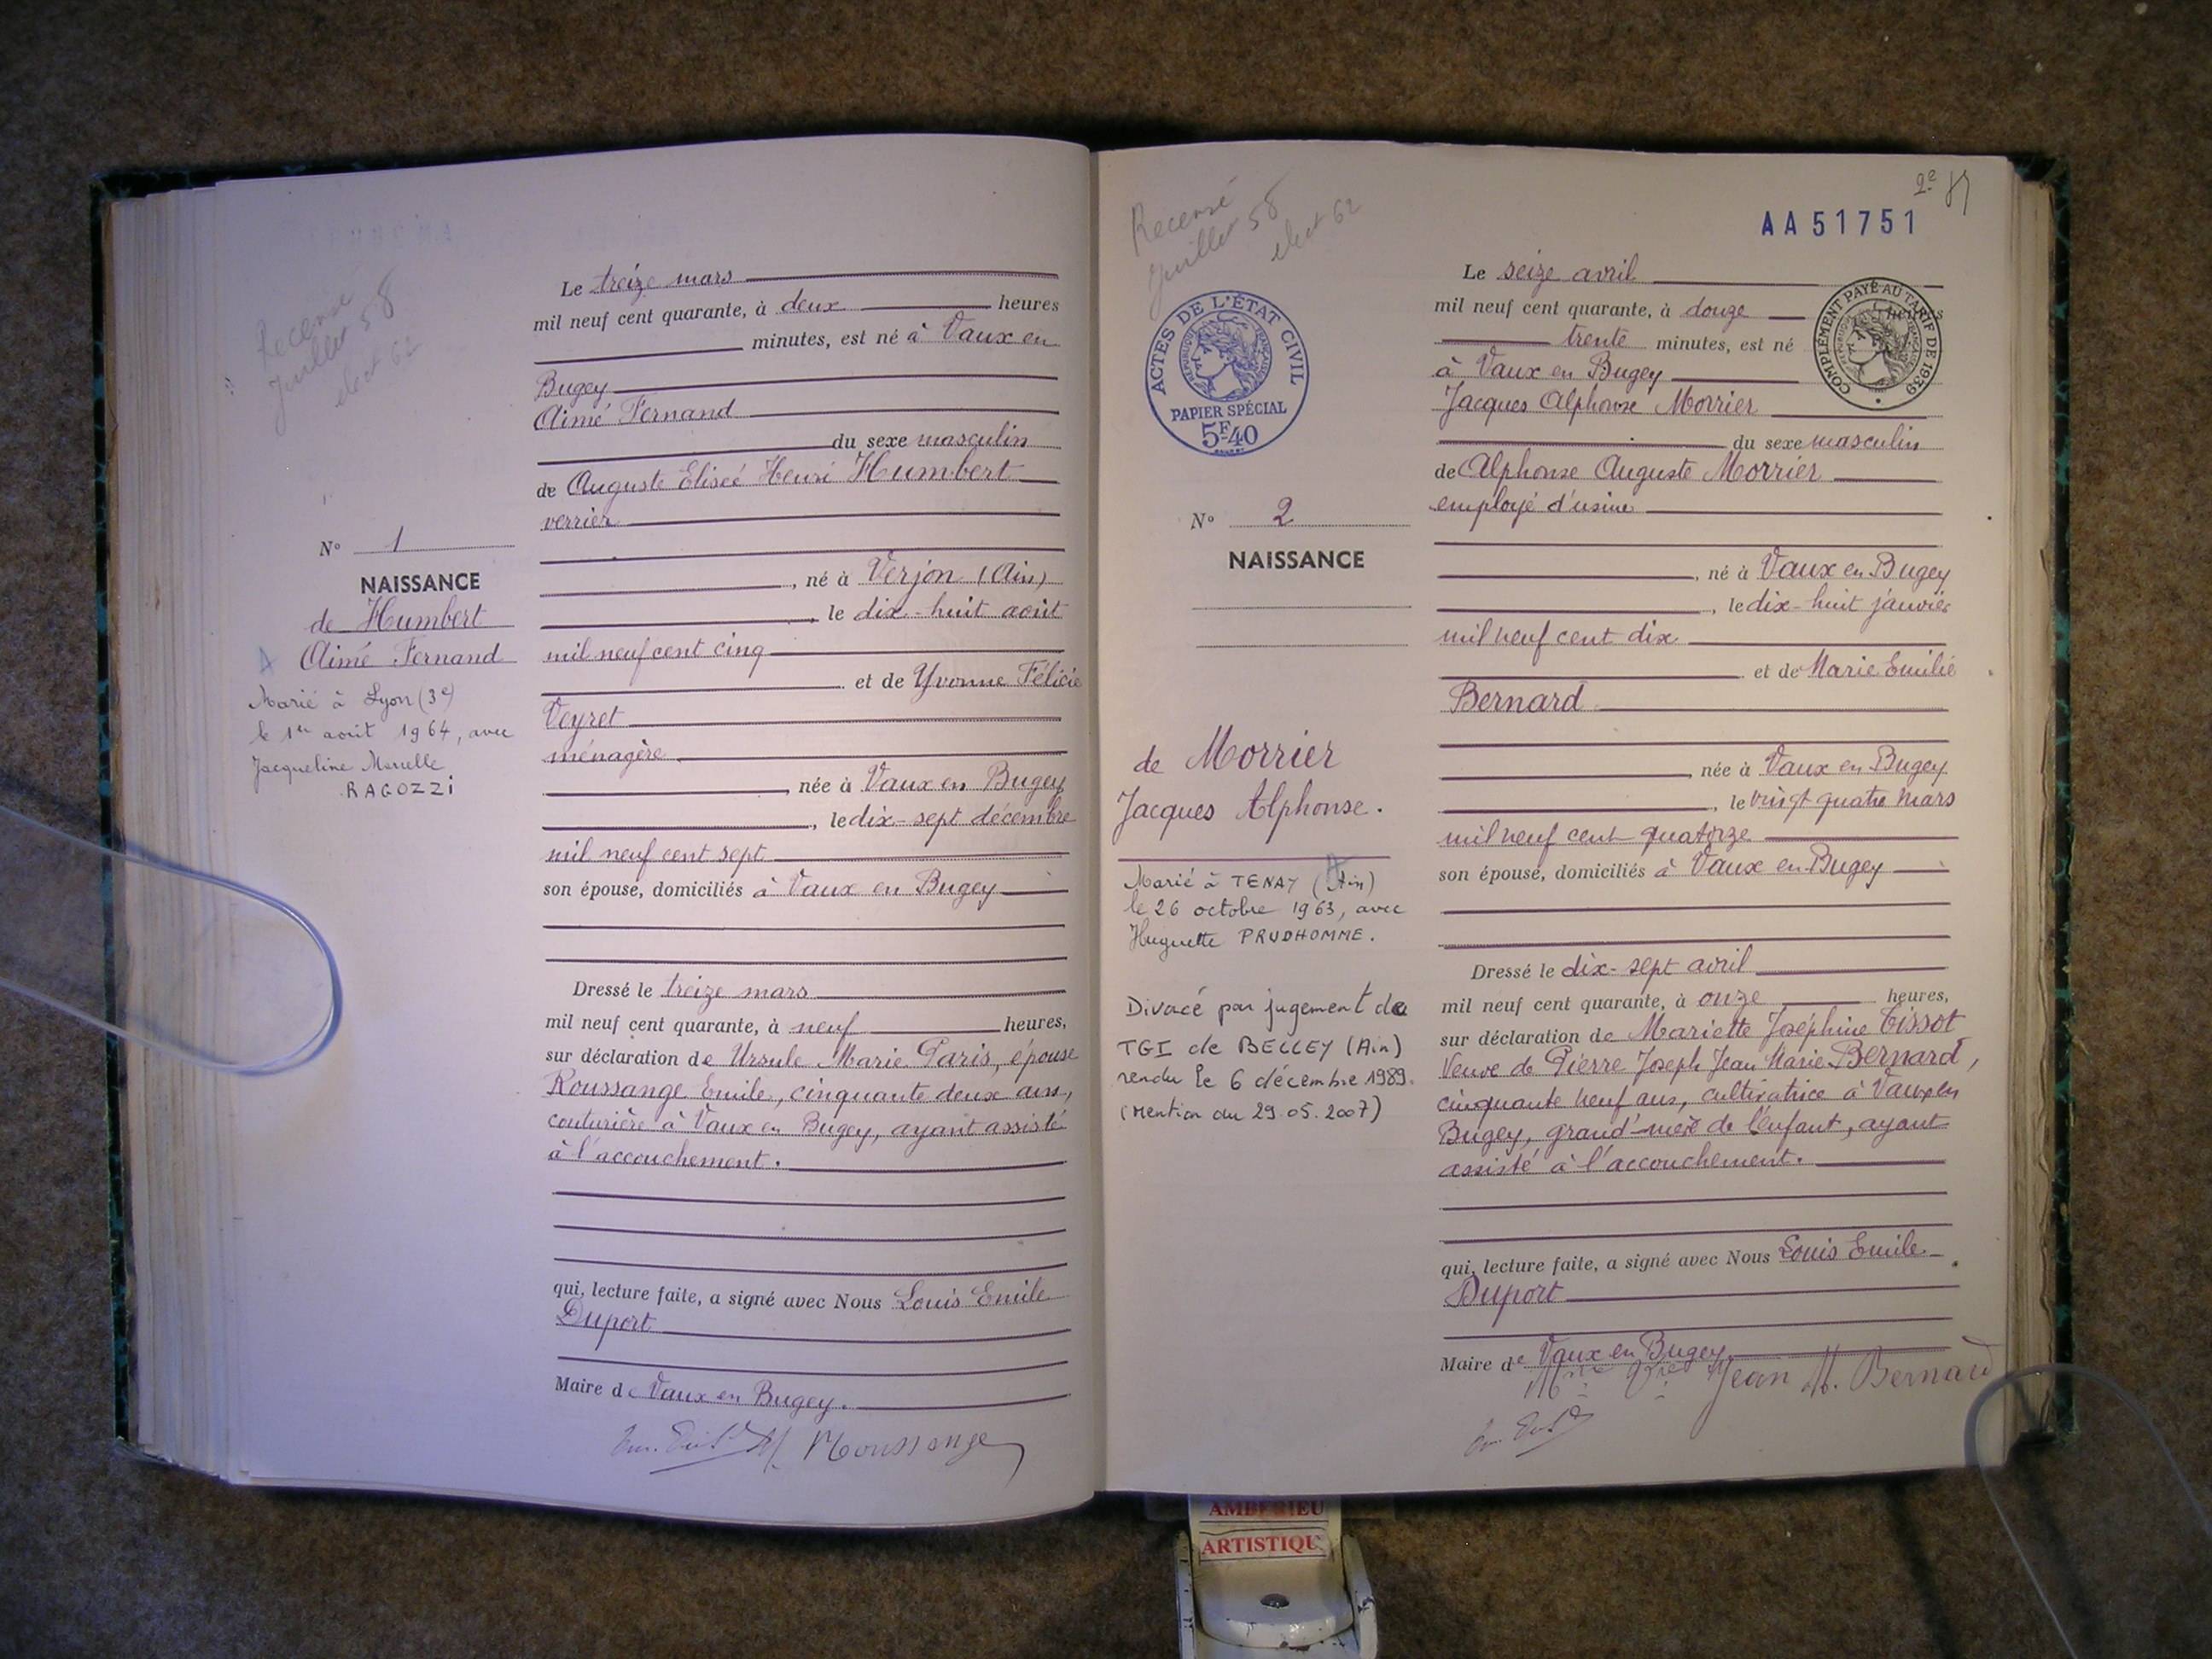 Recensé
Juillet 58
elect 62
N° 1
NAISSANCE
de Humbert
Aimé Fernand
Marié à Lyon (3e)
le 1er août 1964, avec
Jacqueline Marcelle
RAGOZZI
Le treize mars
mil neuf cent quarante, à deux heures
minutes, est né à Vaux en
Bugey
Aimé Fernand
du sexe masculin
de Auguste Elisée Henri Humbert
verrier
, né à Verjon (Ain)
, le dix-huit août
mil neuf cent cinq
et de Yvonne Félicie
Veyret
ménagère
, née à Vaux en Bugey
, le dix-sept décembre
mil neuf cent sept
son épouse, domiciliés à Vaux en Bugey
Dressé le treize mars
mil neuf cent quarante, à neuf heures,
sur déclaration de Ursule Marie Paris, épouse
Roussange Emile, cinquante deux ans,
couturière à Vaux en Bugey, ayant assisté
à l'accouchement.
qui, lecture faite, a signé avec Nous Louis Emile
Duport
Maire de Vaux en Bugey.
M. Roussange
Recensé
Juillet 58
elect 62
ACTES DE L'ÉTAT CIVIL
RÉPUBLIQUE FRANÇAISE
PAPIER SPÉCIAL
5F40
N° 2
NAISSANCE
de Morrier
Jacques Alphonse.
Marié à TENAY (Ain)
le 26 octobre 1963, avec
Huguette PRUDHOMME.
Divorcé par jugement de
TGI de BELLEY (Ain)
rendu le 6 décembre 1989.
(Mention du 29.05.2007)
2e
AA51751
COMPLÉMENT PAYÉ AU TARIF DE 1939
Le seize avril
mil neuf cent quarante, à douze heures
trente minutes, est né
à Vaux en Bugey
Jacques Alphonse Morrier
du sexe masculin
de Alphonse Auguste Morrier
employé d'usine
, né à Vaux en Bugey
, le dix-huit janvier
mil neuf cent dix
et de Marie Emilie
Bernard
, née à Vaux en Bugey
, le vingt quatre mars
mil neuf cent quatorze
son épouse, domiciliés à Vaux en Bugey
Dressé le dix-sept avril
mil neuf cent quarante, à onze heures,
sur déclaration de Mariette Joséphine Tissot
Veuve de Pierre Joseph Jean Marie Bernard,
cinquante neuf ans, cultivatrice à Vaux en
Bugey, grand'mère de l'enfant, ayant
assisté à l'accouchement.
qui, lecture faite, a signé avec Nous Louis Emile
Duport
Maire de Vaux en Bugey
Jean M. Bernard
AMBERIEU
ARTISTIQU